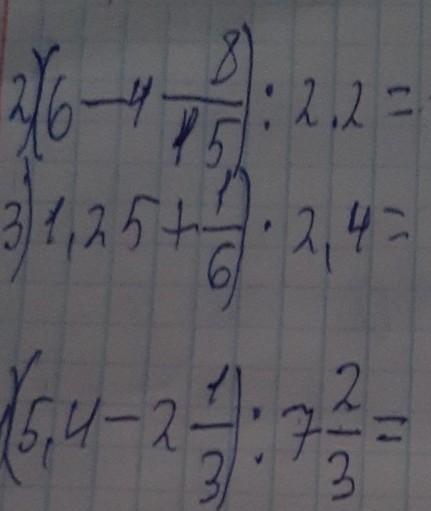 2) (6 - 4 8/15) : 2.2 =
3) 1,25 + 1/6) · 2,4 =
(5,4 - 2 1/3) : 7 2/3 =